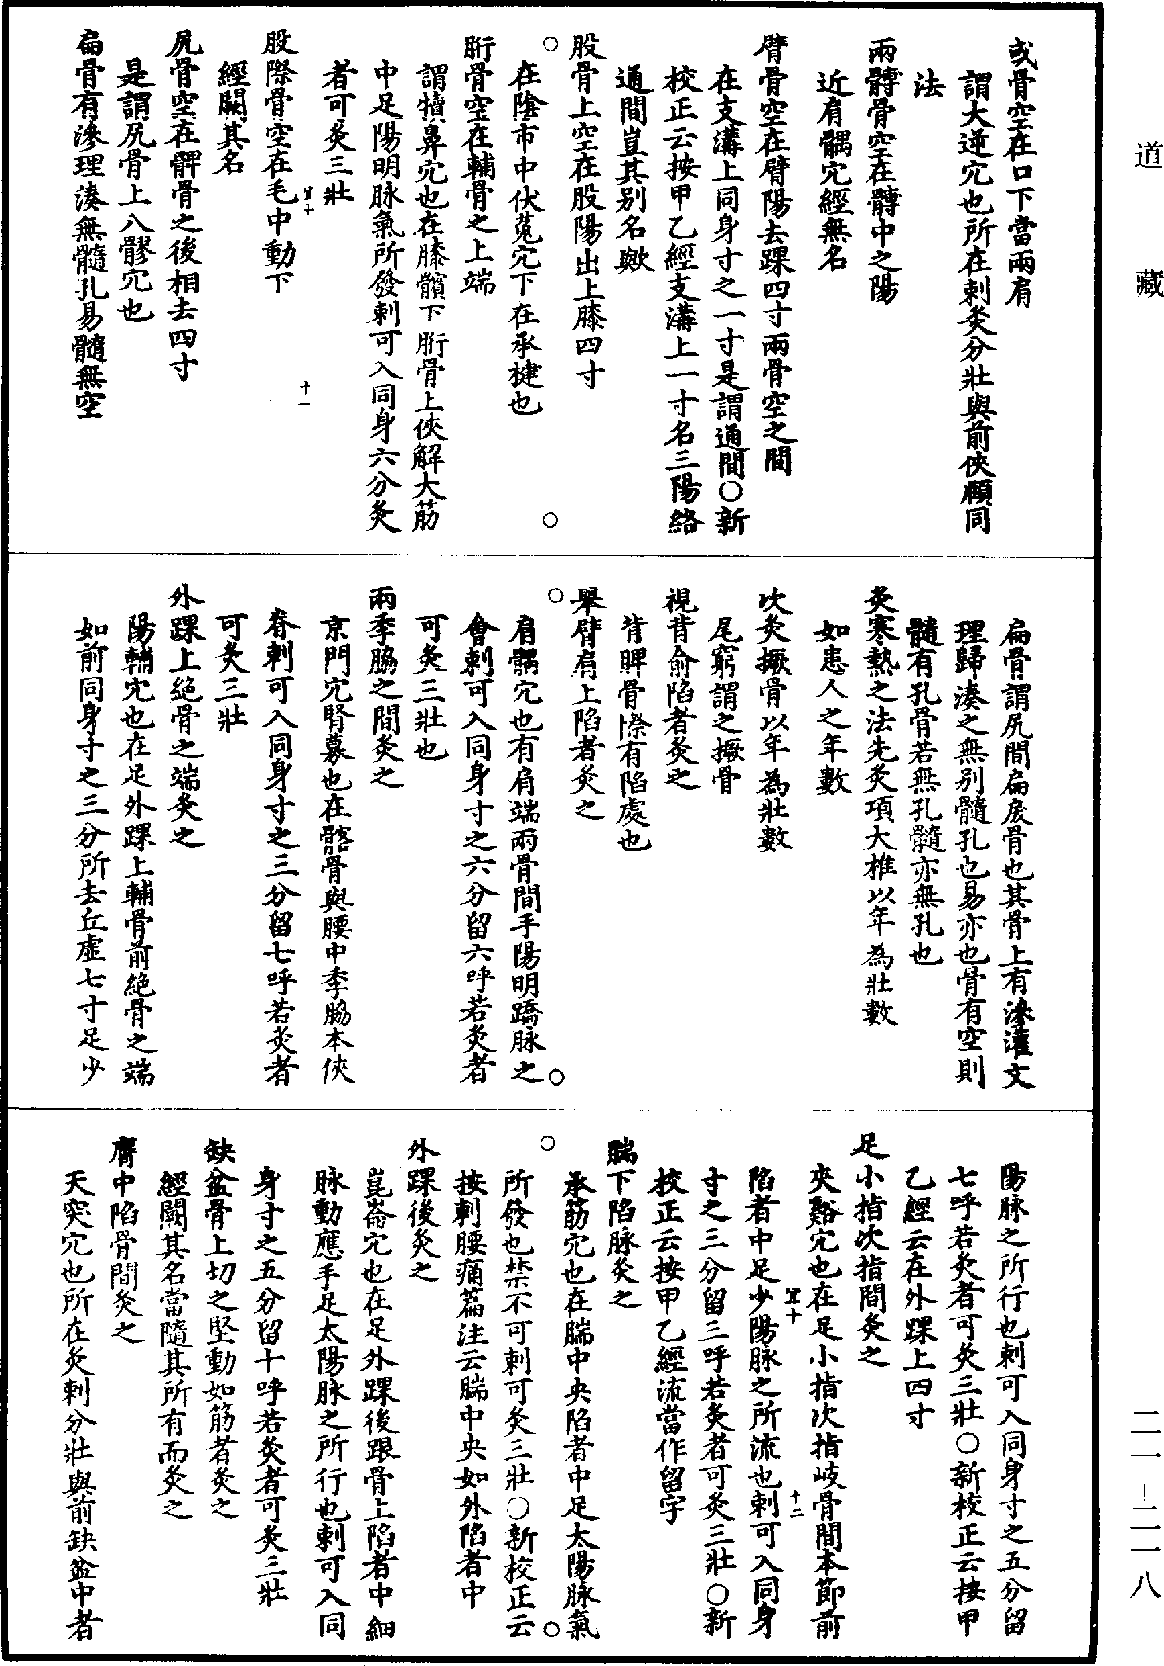 道藏
或骨空在口下當兩肩
謂大迎穴也所在刺灸分壯與前俠頤同
法
兩髆骨空在髆中之陽
近肩髃穴經無名
臂骨空在臂陽去踝四寸兩骨空之間
在支溝上同身寸之一寸是謂通間○新
校正云按甲乙經支溝上一寸名三陽絡
通間豈其別名歟
股骨上空在股陽出上膝四寸
在陰市中伏菟穴下在承楗也
䯒骨空在輔骨之上端
謂犢鼻穴也在膝髕下䯒骨上俠解大筋
中足陽明脉氣所發刺可入同身六分灸
者可灸三壯
股際骨空在毛中動下
經闕其名
尻骨空在髀骨之後相去四寸
是謂尻骨上八髎穴也
扁骨有滲理湊無髓孔易髓無空
扁骨謂尻間扁戾骨也其骨上有滲灌文
理歸湊之無別髓孔也易亦也骨有空則
髓有孔骨若無孔髓亦無孔也
灸寒熱之法先灸項大椎以年為壯數
如患人之年數
次灸橛骨以年為壯數
尾窮謂之橛骨
視背俞陷者灸之
背胛骨際有陷處也
舉臂肩上陷者灸之
肩髃穴也有肩端兩骨間手陽明蹻脉之
會刺可入同身寸之六分留六呼若灸者
可灸三壯也
兩季脇之間灸之
京門穴腎募也在髂骨與腰中季脇本俠
脊刺可入同身寸之三分留七呼若灸者
可灸三壯
外踝上絕骨之端灸之
陽輔穴也在足外踝上輔骨前絕骨之端
如前同身寸之三分所去丘虛七寸足少
陽脉之所行也刺可入同身寸之五分留
七呼若灸者可灸三壯○新校正云按甲
乙經云在外踝上四寸
足小指次指間灸之
夾谿穴也在足小指次指岐骨間本節前
陷者中足少陽脉之所流也刺可入同身
寸之三分留三呼若灸者可灸三壯○新
校正云按甲乙經流當作留字
腨下陷脉灸之
承筋穴也在腨中央陷者中足太陽脉氣
所發也禁不可刺可灸三壯○新校正云
按刺腰痛篇注云腨中央如外陷者中
外踝後灸之
崑崙穴也在足外踝後跟骨上陷者中細
脉動應手足太陽脉之所行也刺可入同
身寸之五分留十呼若灸者可灸三壯
缺盆骨上切之堅動如筋者灸之
經闕其名當隨其所有而灸之
膺中陷骨間灸之
天突穴也所在灸刺分壯與前缺盆中者
十一
十二
二一－二一八